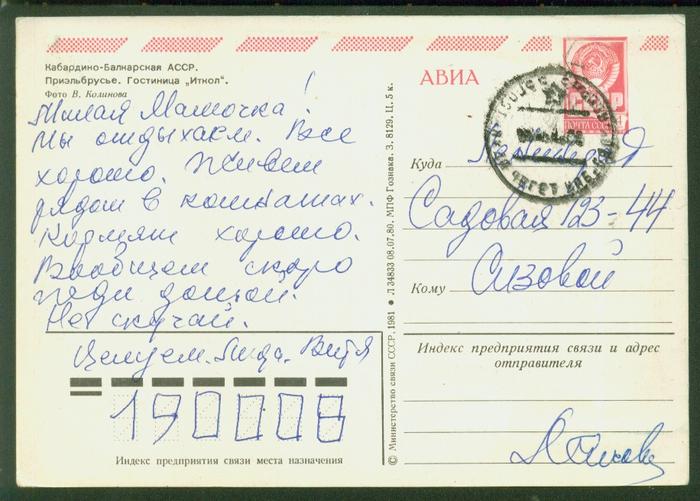 Кабардино-Балкарская АССР.
Приэльбрусье. Гостиница „Иткол".
Фото В. Коликова
Милая Мамочка!
Мы отдыхаем. Все
хорошо. Живем
рядом в комнатах.
Кормят хорошо.
Вообщем скоро
жди домой.
Не скучай.
Целуем. Лида. Витя
190008
Индекс предприятия связи места назначения
© Министерство связи СССР, 1981 • Л 34833 08.07.80. МПФ Гознака. З. 8129. Ц. 5 к.
АВИА
ПОЧТА СССР
Куда Ленинград
Садовая 123-44
Кому Сизовой
Индекс предприятия связи и адрес
отправителя